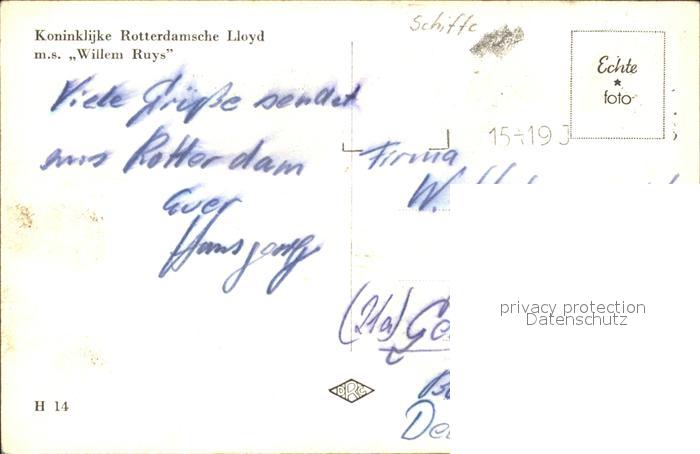 Koninklijke Rotterdamsche Lloyd
m.s. „Willem Ruys"
Schiffe
Echte
*
foto
Viele Grüße sendet
aus Rotterdam
Euer
15-19
Firma
W.
(21a) Ge
privacy protection
Datenschutz
De
H 14